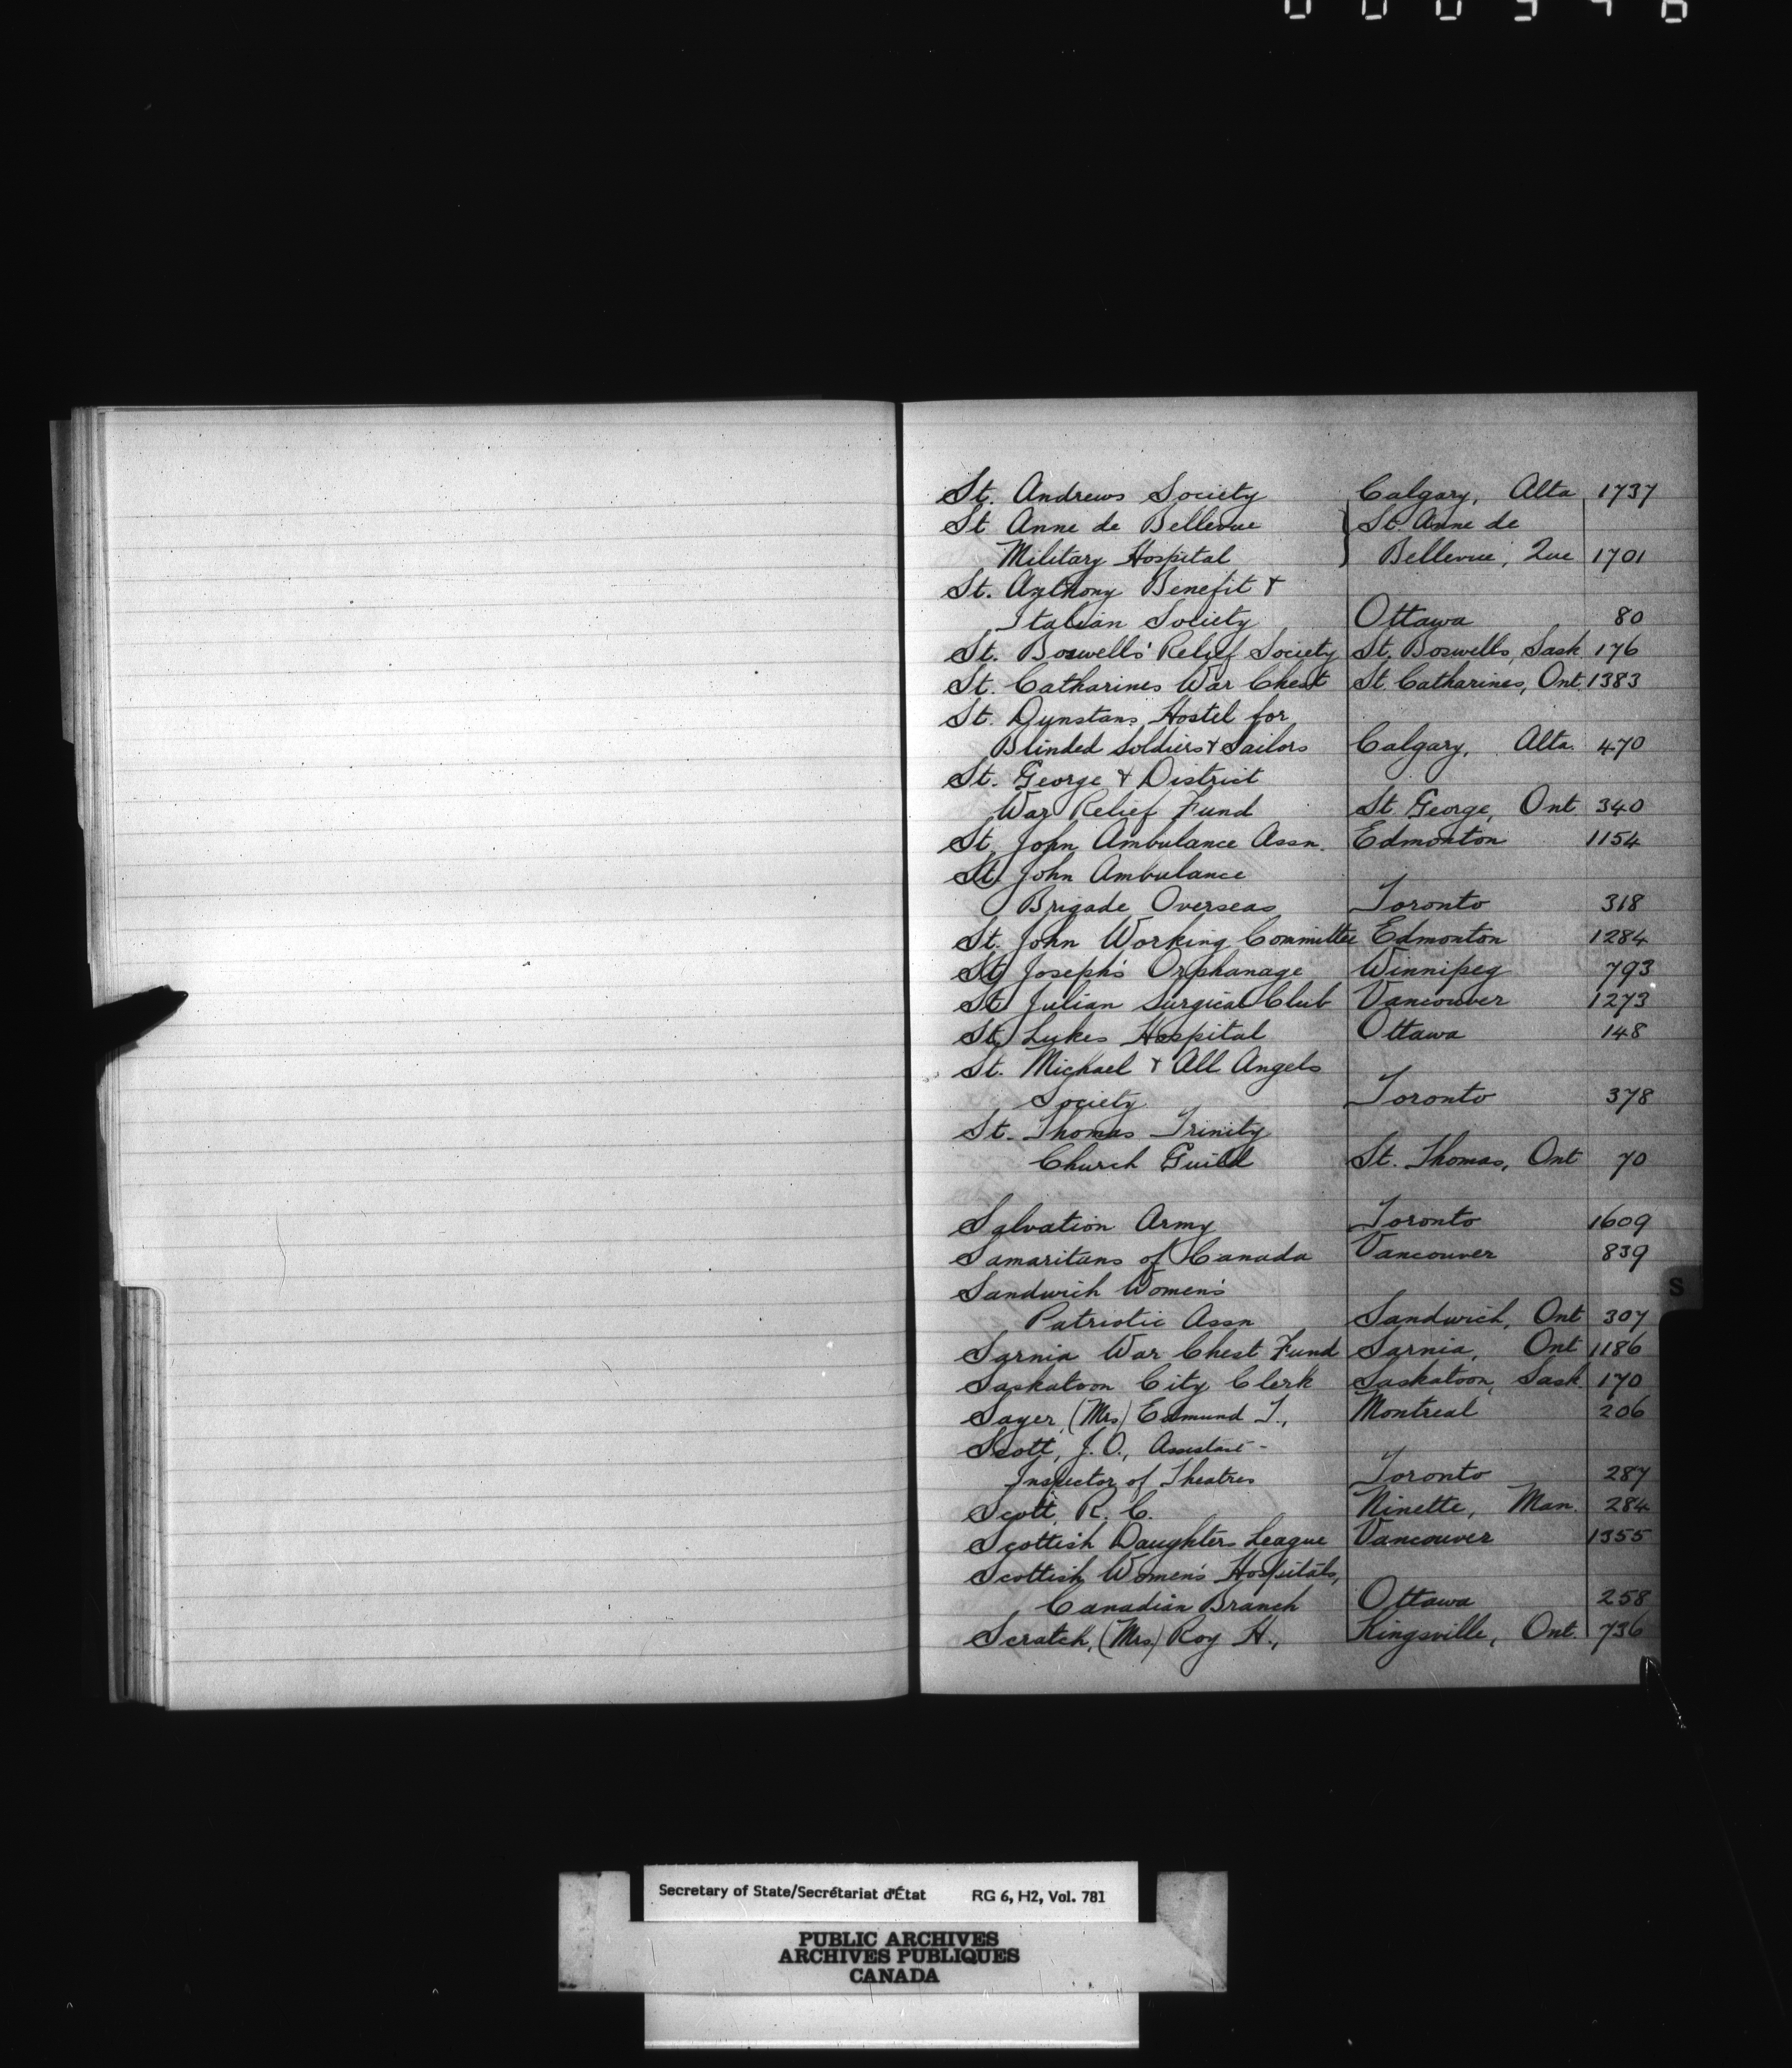 St. Andrews Society Calgary, Alta 1737
St Anne de Bellevue } St. Anne de
Military Hospital } Bellevue, Que 1701
St. Anthony Benefit &
Italian Society Ottawa 80
St. Boswells' Relief Society St. Boswells, Sask 176
St. Catharines War Chest St. Catharines, Ont. 1383
St. Dunstans Hostel for
Blinded Soldiers & Sailors Calgary, Alta. 470
St. George & District
War Relief Fund St George, Ont 340
St. John Ambulance Assn. Edmonton 1154
St. John Ambulance
Brigade Overseas Toronto 318
St. John Working Committee Edmonton 1284
St Joseph's Orphanage Winnipeg 793
St Julian Surgical Club Vancouver 1273
St Lukes Hospital Ottawa 148
St. Michael & All Angels
Society Toronto 378
St. Thomas Trinity
Church Guild St. Thomas, Ont 70
Salvation Army Toronto 1609
Samaritans of Canada Vancouver 839
Sandwich Women's
S
Patriotic Assn Sandwich, Ont 307
Sarnia War Chest Fund Sarnia, Ont 1186
Saskatoon City Clerk Saskatoon, Sask. 170
Sayer, (Mrs) Edmund T., Montreal 206
Scott, J. O., Assistant-
Inspector of Theatres Toronto 287
Scott, R. C. Ninette, Man. 284
Scottish Daughters League Vancouver 1355
Scottish Women's Hospitals,
Canadian Branch Ottawa 258
Scratch, (Mrs) Roy H., Kingsville, Ont. 736
Secretary of State/Secrétariat d'État RG 6, H2, Vol. 781
PUBLIC ARCHIVES
ARCHIVES PUBLIQUES
CANADA